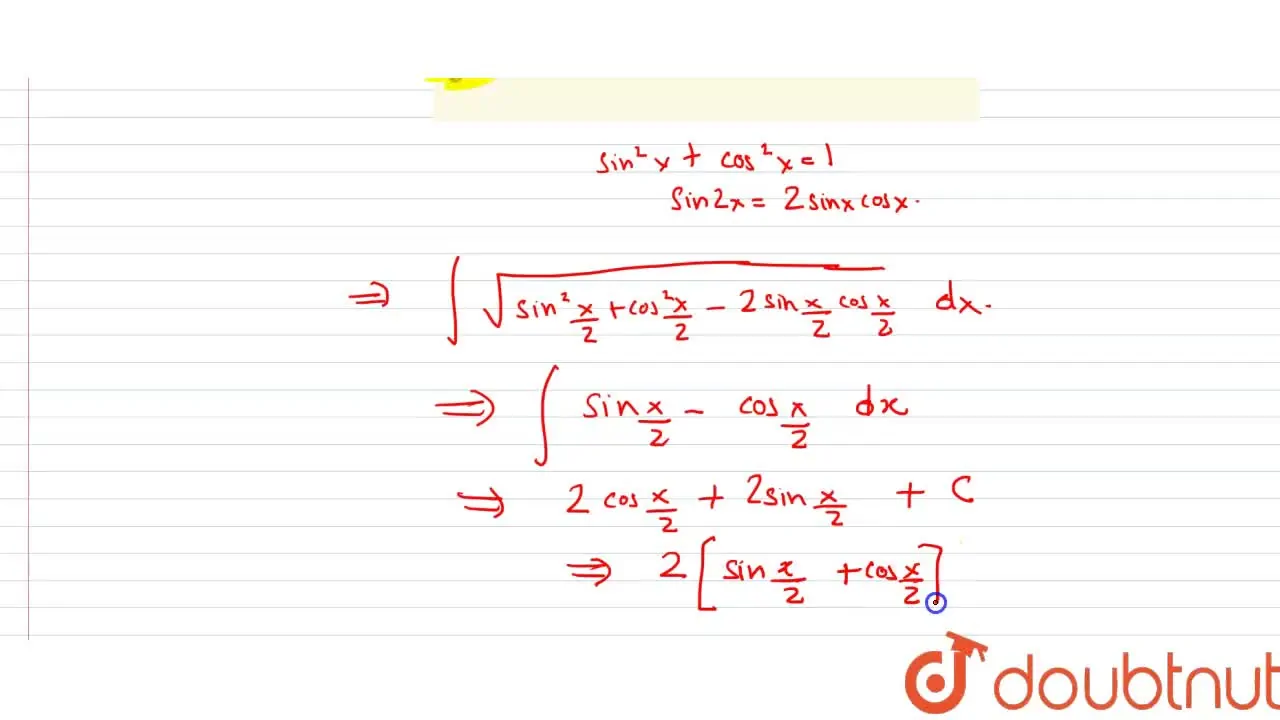 sin²x + cos²x = 1
Sin2x = 2sinx cosx.
⇒ ∫ √(sin² x/2 + cos² x/2 − 2 sin x/2 cos x/2) dx.
⇒ ∫ sin x/2 − cos x/2 dx
⇒ 2 cos x/2 + 2 sin x/2 + C
⇒ 2 [sin x/2 + cos x/2]
doubtnut